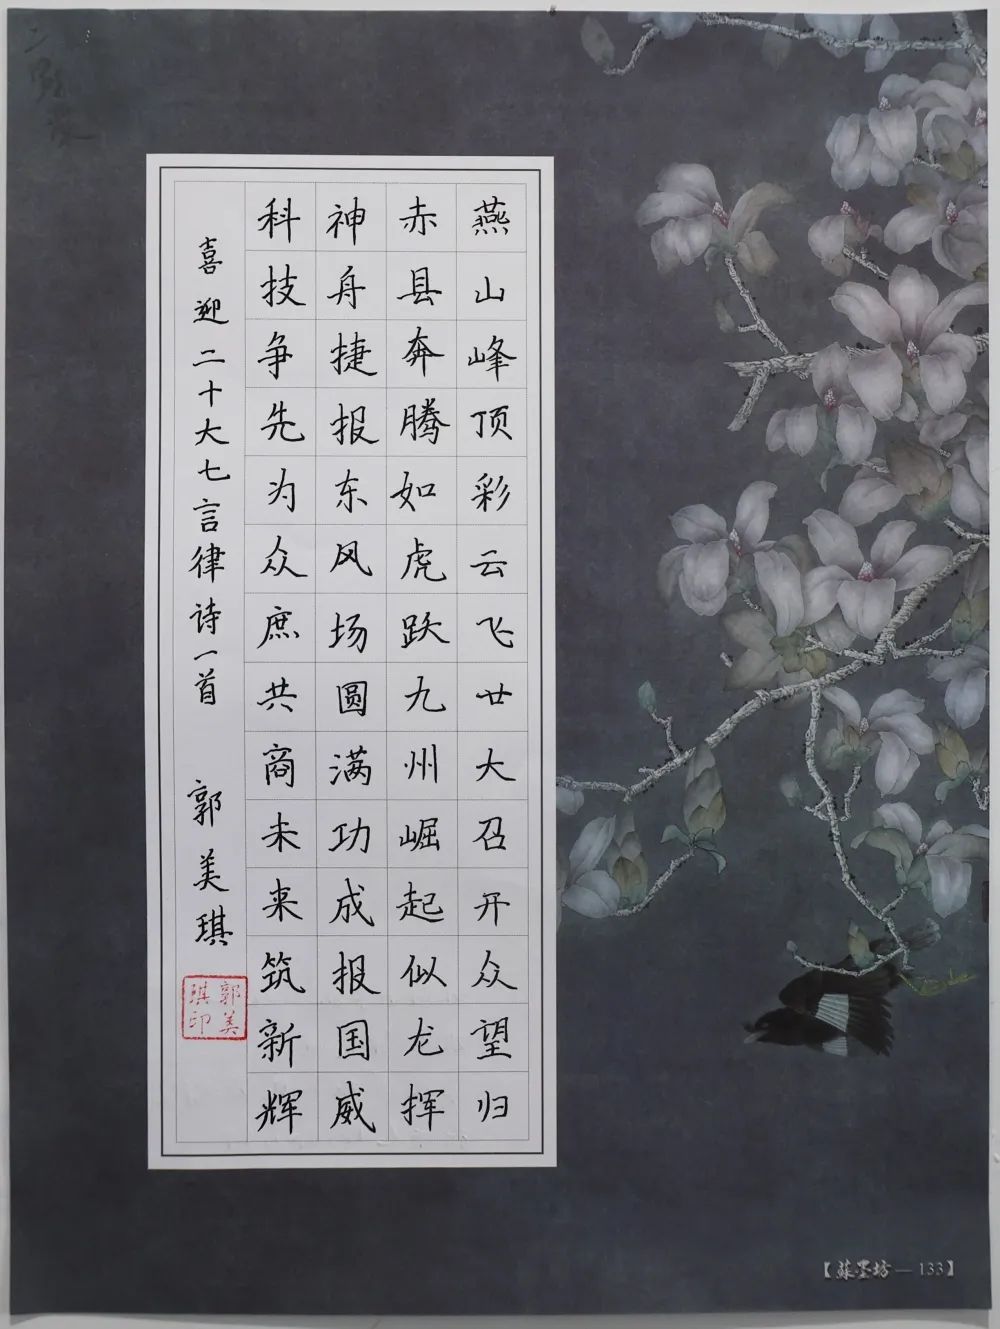 燕山峰顶彩云飞廿大召开众望归
赤县奔腾如虎跃九州崛起似龙挥
神舟捷报东风场圆满功成报国威
科技争先为众庶共商未来筑新辉
喜迎二十大七言律诗一首 郭美琪
郭美琪印
【蘇墨坊—133】